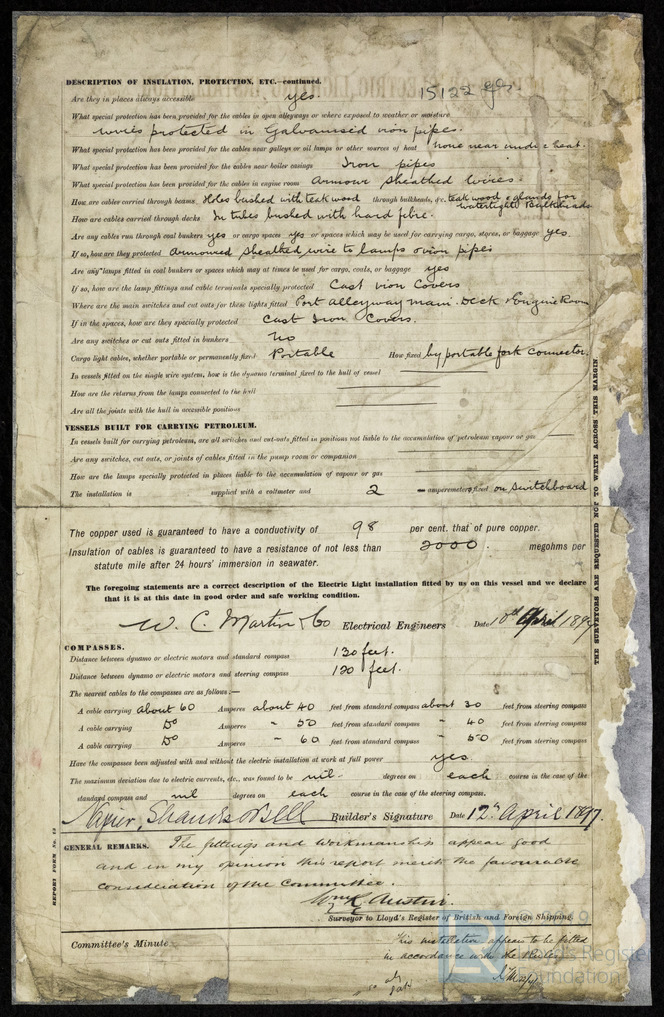 DESCRIPTION OF INSULATION, PROTECTION, ETC.—continued.
15122 gls.
Are they in places always accessible yes.
What special protection has been provided for the cables in open alleyways or where exposed to weather or moisture
wires protected in Galvanised iron pipes.
What special protection has been provided for the cables near galleys or oil lamps or other sources of heat none near undue heat.
What special protection has been provided for the cables near boiler casings Iron pipes
What special protection has been provided for the cables in engine room Armour sheathed wires.
How are cables carried through beams Holes bushed with teak wood through bulkheads, &c. teak wood & glands for watertight Bulkheads
How are cables carried through decks In tubes bushed with hard fibre.
Are any cables run through coal bunkers yes or cargo spaces yes or spaces which may be used for carrying cargo, stores, or baggage yes.
If so, how are they protected Armoured sheathed wire to lamps & iron pipes
Are any lamps fitted in coal bunkers or spaces which may at times be used for cargo, coals, or baggage yes
If so, how are the lamp fittings and cable terminals specially protected Cast iron Covers
Where are the main switches and cut outs for these lights fitted Port Alleyway main Deck & Engine Room
If in the spaces, how are they specially protected Cast Iron Covers.
Are any switches or cut outs fitted in bunkers no
Cargo light cables, whether portable or permanently fixed Portable How fixed by portable fork connector.
In vessels fitted on the single wire system, how is the dynamo terminal fixed to the hull of vessel
How are the returns from the lamps connected to the hull
Are all the joints with the hull in accessible positions
VESSELS BUILT FOR CARRYING PETROLEUM.
In vessels built for carrying petroleum, are all switches and cut-outs fitted in positions not liable to the accumulation of petroleum vapour or gas
Are any switches, cut outs, or joints of cables fitted in the pump room or companion
How are the lamps specially protected in places liable to the accumulation of vapour or gas
The installation is supplied with a voltmeter and 2 amperemeters, fixed on switchboard
The copper used is guaranteed to have a conductivity of 98 per cent. that of pure copper.
Insulation of cables is guaranteed to have a resistance of not less than 2000. megohms per
statute mile after 24 hours' immersion in seawater.
The foregoing statements are a correct description of the Electric Light installation fitted by us on this vessel and we declare
that it is at this date in good order and safe working condition.
W. C. Martin & Co Electrical Engineers Date 10th April 1897
COMPASSES.
Distance between dynamo or electric motors and standard compass 130 feet.
Distance between dynamo or electric motors and steering compass 120 feet.
The nearest cables to the compasses are as follows:—
A cable carrying about 60 Amperes about 40 feet from standard compass about 30 feet from steering compass
A cable carrying Do Amperes " 50 feet from standard compass " 40 feet from steering compass
A cable carrying Do Amperes " 60 feet from standard compass " 50 feet from steering compass
Have the compasses been adjusted with and without the electric installation at work at full power yes.
The maximum deviation due to electric currents, etc., was found to be nil. degrees on each course in the case of the
standard compass and nil degrees on each course in the case of the steering compass.
Napier, Shanks & Bell Builder's Signature Date 12th April 1897.
GENERAL REMARKS. The fittings and workmanship appear good
and in my opinion this report merits the favourable
consideration of the Committee.
Wm R. Austin.
Surveyor to Lloyd's Register of British and Foreign Shipping.
Committee's Minute
This installation appears to be fitted
in accordance with the Rules
THE SURVEYORS ARE REQUESTED NOT TO WRITE ACROSS THIS MARGIN
REPORT FORM No. 13
Lloyd's Register
Foundation